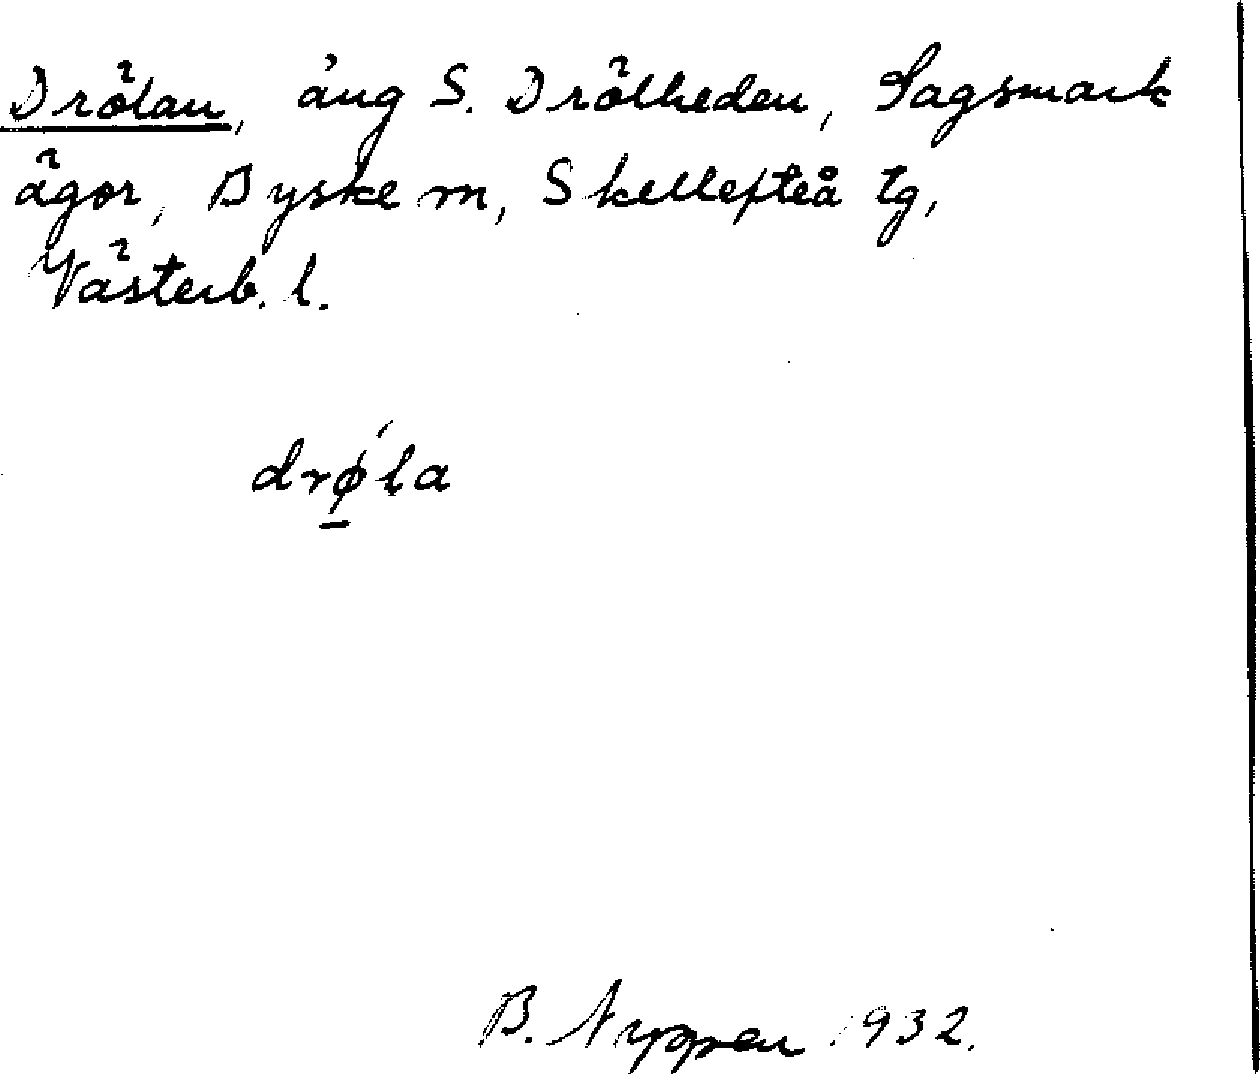 Drölan, äng S. Drölheden, Sagsmark
ägor, Byske sn, Skellefteå tg,
Västerb. l.
drǿla
B. Nyppen 1932.